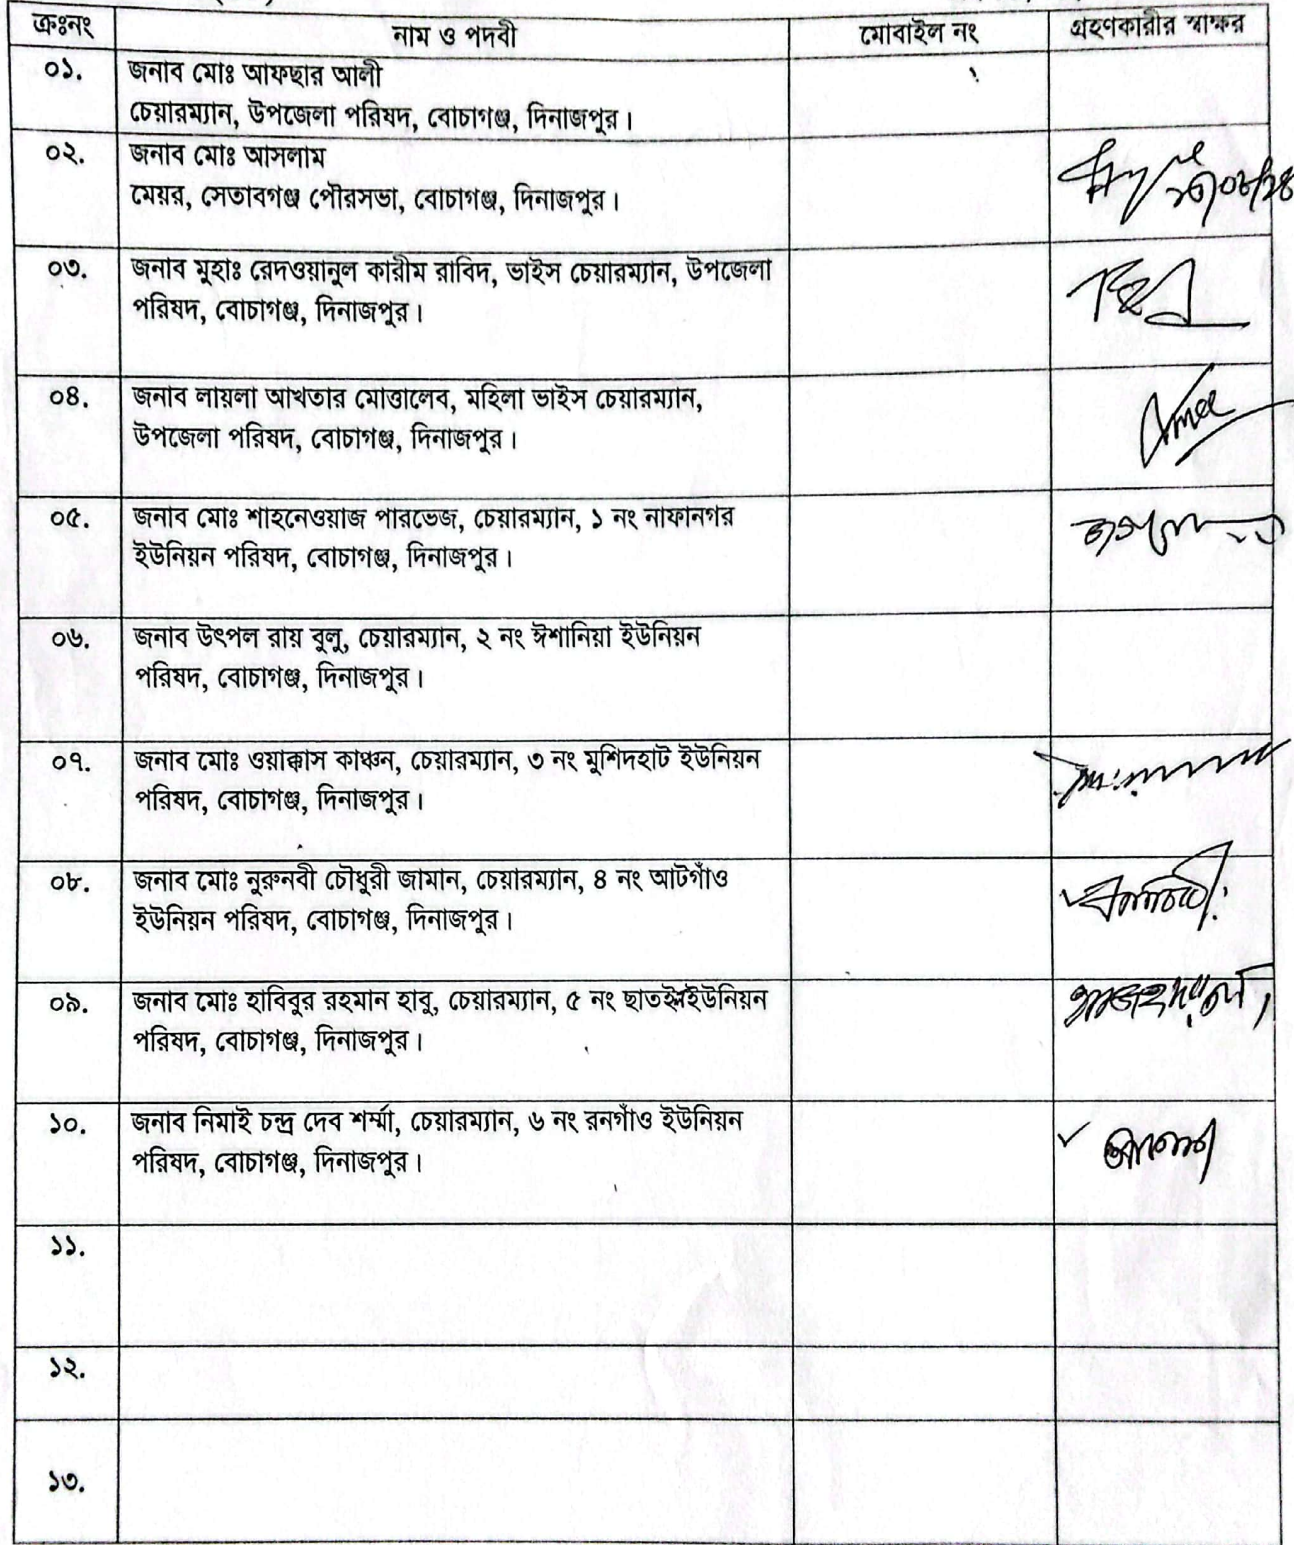 ক্রঃনং নাম ও পদবী মোবাইল নং গ্রহণকারীর স্বাক্ষর
০১. জনাব মোঃ আফছার আলী
চেয়ারম্যান, উপজেলা পরিষদ, বোচাগঞ্জ, দিনাজপুর।
০২. জনাব মোঃ আসলাম
মেয়র, সেতাবগঞ্জ পৌরসভা, বোচাগঞ্জ, দিনাজপুর।
০৩. জনাব মুহাঃ রেদওয়ানুল কারীম রাবিদ, ভাইস চেয়ারম্যান, উপজেলা
পরিষদ, বোচাগঞ্জ, দিনাজপুর।
০৪. জনাব লায়লা আখতার মোত্তালেব, মহিলা ভাইস চেয়ারম্যান,
উপজেলা পরিষদ, বোচাগঞ্জ, দিনাজপুর।
০৫. জনাব মোঃ শাহনেওয়াজ পারভেজ, চেয়ারম্যান, ১ নং নাফানগর
ইউনিয়ন পরিষদ, বোচাগঞ্জ, দিনাজপুর।
০৬. জনাব উৎপল রায় বুলু, চেয়ারম্যান, ২ নং ঈশানিয়া ইউনিয়ন
পরিষদ, বোচাগঞ্জ, দিনাজপুর।
০৭. জনাব মোঃ ওয়াক্কাস কাঞ্চন, চেয়ারম্যান, ৩ নং মুশিদহাট ইউনিয়ন
পরিষদ, বোচাগঞ্জ, দিনাজপুর।
০৮. জনাব মোঃ নুরুনবী চৌধুরী জামান, চেয়ারম্যান, ৪ নং আটগাঁও
ইউনিয়ন পরিষদ, বোচাগঞ্জ, দিনাজপুর।
০৯. জনাব মোঃ হাবিবুর রহমান হাবু, চেয়ারম্যান, ৫ নং ইউনিয়ন
পরিষদ, বোচাগঞ্জ, দিনাজপুর।
১০. জনাব নিমাই চন্দ্র দেব শর্ম্মা, চেয়ারম্যান, ৬ নং রনগাঁও ইউনিয়ন
পরিষদ, বোচাগঞ্জ, দিনাজপুর।
১১.
১২.
১৩.